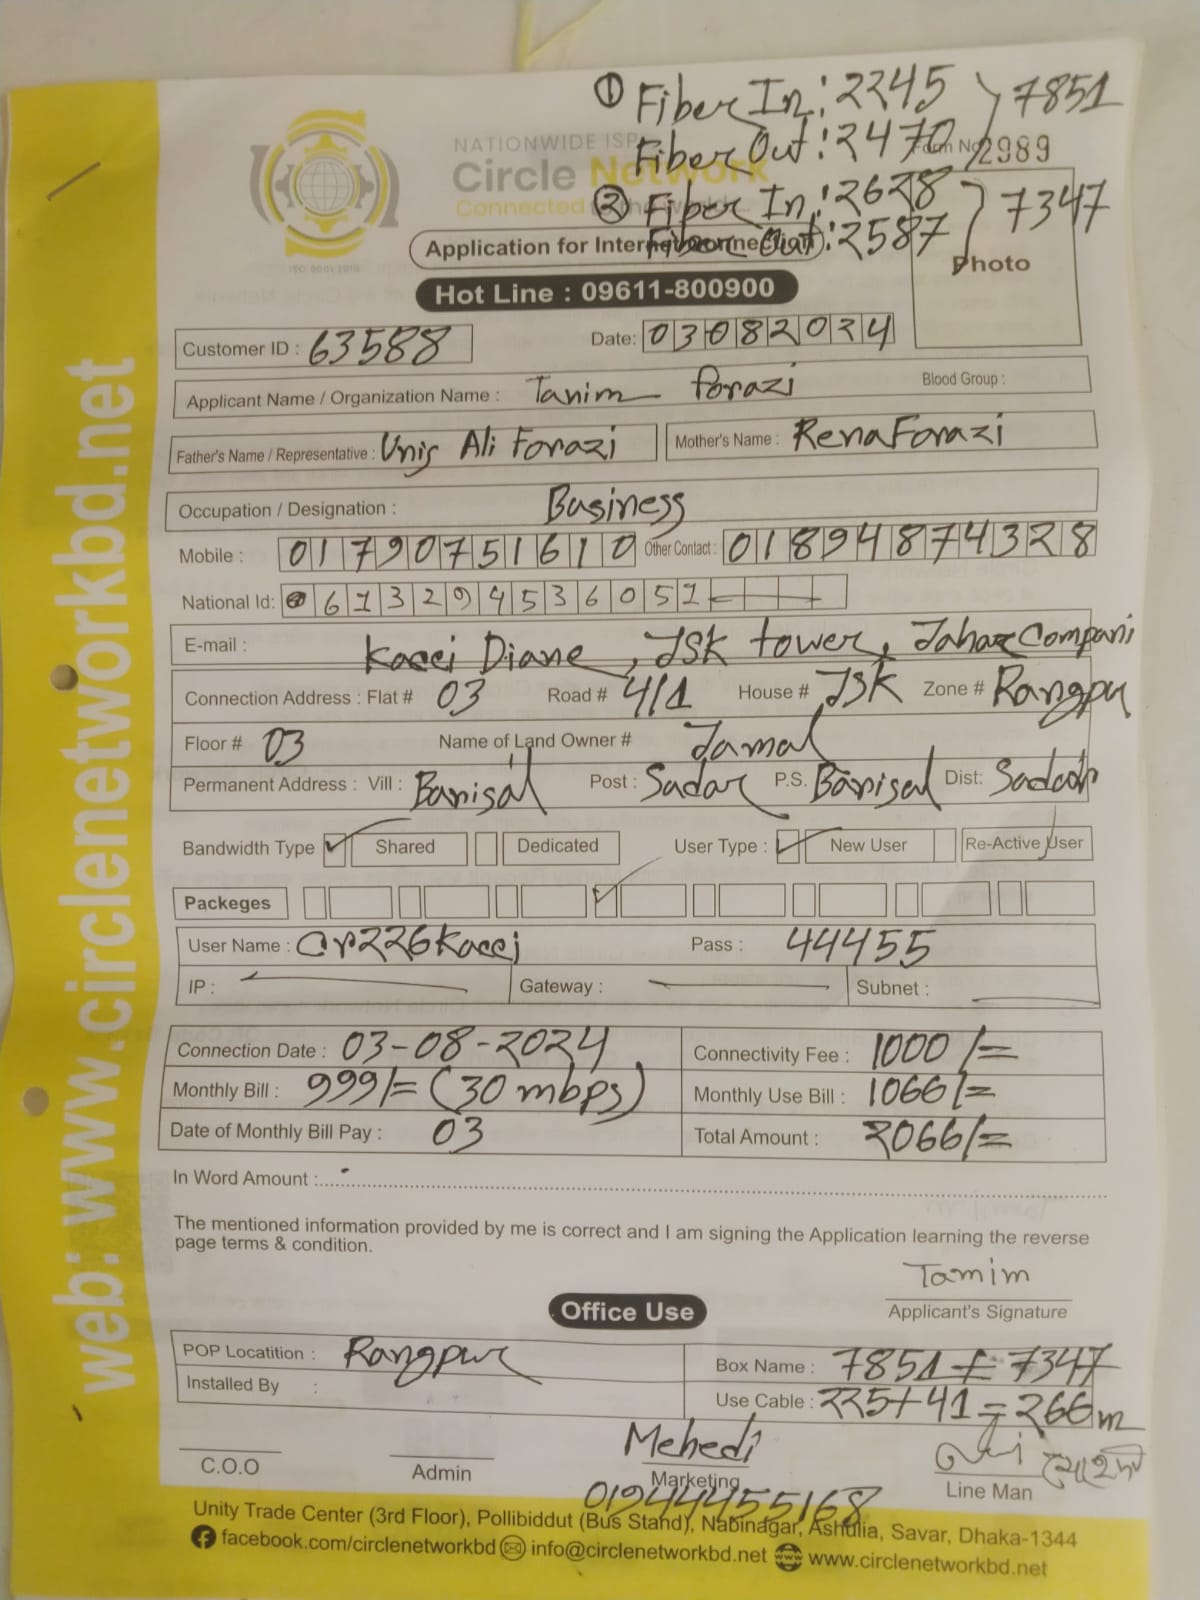 ① Fiber In: 2245
Fiber Out: 2470
7851
NATIONWIDE ISP
Circle Network
Connected to the world...
Form No 2989
② Fiber In: 2628
Fiber Out: 2587
7347
ISO 9001:2015
Application for Internet Connection
Photo
Hot Line : 09611-800900
Customer ID : 63588 Date: 03082024
Applicant Name / Organization Name : Tanim Forazi Blood Group :
Father's Name / Representative : Unis Ali Forazi Mother's Name : Rena Forazi
Occupation / Designation : Business
Mobile : 01790751610 Other Contact : 01894874328
National Id: 6132945360 51
E-mail : Kacci Diane, JSK tower, Jahar Compani
Connection Address : Flat # 03 Road # 4/1 House # JSK Zone # Rangpu
Floor # 03 Name of Land Owner # Jamal
Permanent Address : Vill : Barisal Post : Sadar P.S. Barisal Dist: Sadar
Bandwidth Type ✓ Shared Dedicated User Type : ✓ New User Re-Active User
Packeges ✓
User Name : Cr226Kacci Pass : 44455
IP : Gateway : Subnet :
Connection Date : 03-08-2024 Connectivity Fee : 1000/=
Monthly Bill : 999/= (30 mbps) Monthly Use Bill : 1066/=
Date of Monthly Bill Pay : 03 Total Amount : 2066/=
In Word Amount :
The mentioned information provided by me is correct and I am signing the Application learning the reverse
page terms & condition.
Tamim
Applicant's Signature
Office Use
POP Locatition : Rangpur Box Name : 7851 + 7347
Installed By : Use Cable : 225+41=266m
Mehedi
C.O.O Admin Marketing Line Man
01944455168
Unity Trade Center (3rd Floor), Pollibiddut (Bus Stand), Nabinagar, Ashulia, Savar, Dhaka-1344
facebook.com/circlenetworkbd info@circlenetworkbd.net www.circlenetworkbd.net
web: www.circlenetworkbd.net